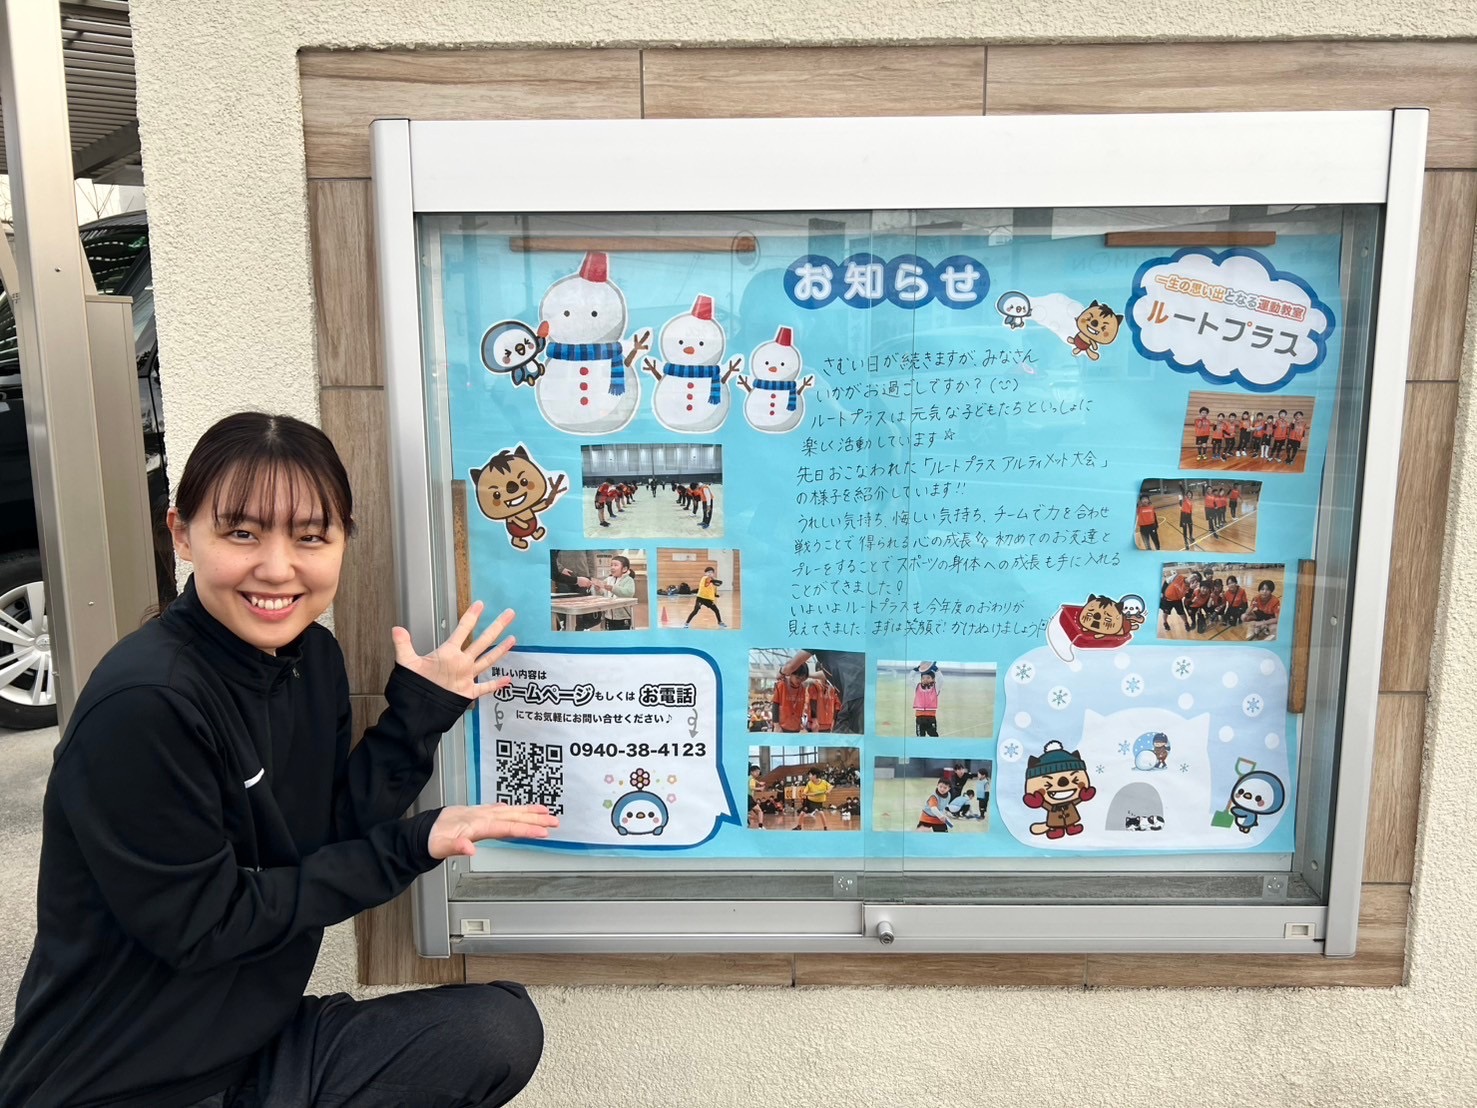 お知らせ
一生の思い出となる運動教室
ルートプラス
さむい日が続きますが、みなさん
いかがお過ごしですか?
ルートプラスは元気な子どもたちといっしょに
楽しく活動しています☆
先日おこなわれた「ルートプラス アルティメット大会」
の様子を紹介しています!!
うれしい気持ち、悔しい気持ち、チームで力を合わせ
戦うことで得られる心の成長 初めてのお友達と
プレーをすることでスポーツの身体への成長も手に入れる
ことができました!
いよいよルートプラスも今年度のおわりが
見えてきました、まずは笑顔で!かけぬけましょう
詳しい内容は
ホームページもしくはお電話
にてお気軽にお問い合せください♪
0940-38-4123